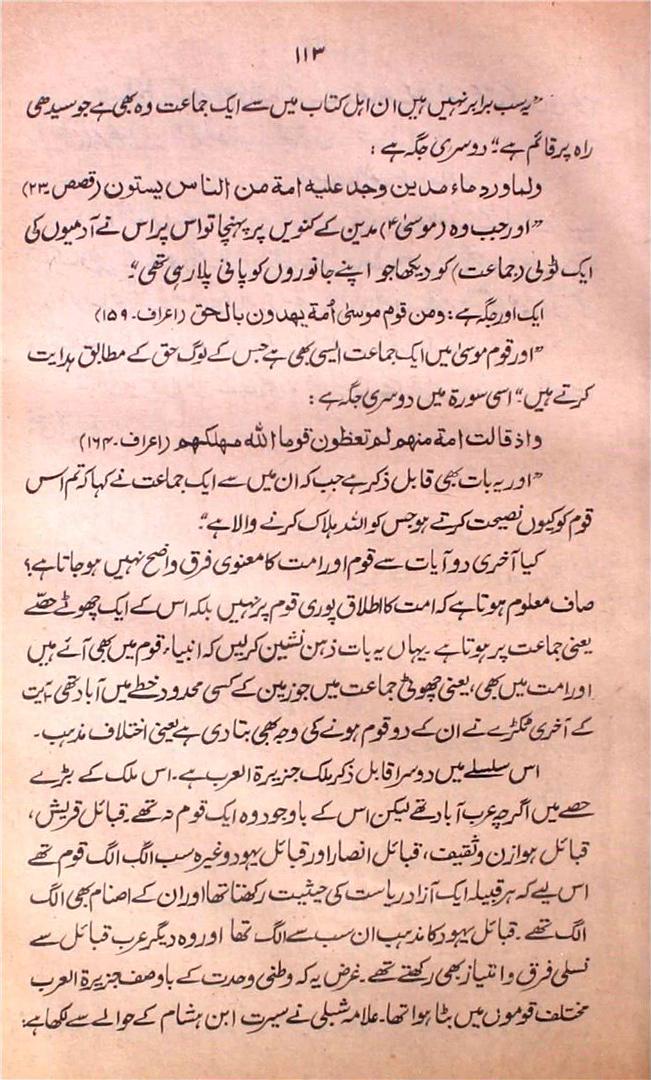 ۱۱۳
”یہ سب برابر نہیں ہیں ان اہل کتاب میں سے ایک جماعت وہ بھی ہے جو سیدھی
راہ پر قائم ہے“ دوسری جگہ ہے :
ولما ورد ماء مدین وجد علیہ امة من الناس یسقون (قصص ۔۲۳)
”اور جب وہ (موسیٰ ۴) مدین کے کنویں پر پہنچا تو اس پر اس نے آدمیوں کی
ایک ٹولی (جماعت) کو دیکھا جو اپنے جانوروں کو پانی پلا رہی تھی“۔
ایک اور جگہ ہے : ومن قوم موسیٰ اُمة یھدون بالحق (اعراف۔ ۱۵۹)
”اور قوم موسیٰ میں ایک جماعت ایسی بھی ہے جس کے لوگ حق کے مطابق ہدایت
کرتے ہیں“ اسی سورۃ میں دوسری جگہ ہے :
واذ قالت امة منھم لم تعظون قوما اللہ مھلکھم (اعراف۔ ۱۶۴)
”اور یہ بات بھی قابل ذکر ہے جب کہ ان میں سے ایک جماعت نے کہا کہ تم اس
قوم کو کیوں نصیحت کرتے ہو جس کو اللہ ہلاک کرنے والا ہے“۔
کیا آخری دو آیات سے قوم اور امت کا معنوی فرق واضح نہیں ہو جاتا ہے؟
صاف معلوم ہوتا ہے کہ امت کا اطلاق پوری قوم پر نہیں بلکہ اس کے ایک چھوٹے حصّے
یعنی جماعت پر ہوتا ہے ۔ یہاں یہ بات ذہن نشین کرلیں کہ انبیاء قوم میں بھی آئے ہیں
اور امت میں بھی، یعنی چھوٹی جماعت میں جو زمین کے کسی محدود خطے میں آباد تھی ۔ آیت
کے آخری ٹکڑے نے ان کے دو قوم ہونے کی وجہ بھی بتا دی ہے یعنی اختلاف مذہب ۔
اس سلسلے میں دوسرا قابل ذکر ملک جزیرۃ العرب ہے ۔ اس ملک کے بڑے
حصے میں اگرچہ عرب آباد تھے لیکن اس کے باوجود وہ ایک قوم نہ تھے ۔ قبائل قریش،
قبائل ہوازن و ثقیف، قبائل انصار اور قبائل یہود وغیرہ سب الگ الگ قوم تھے
اس لیے کہ ہر قبیلہ ایک آزاد ریاست کی حیثیت رکھتا تھا اور ان کے اصنام بھی الگ
الگ تھے ۔ قبائل یہود کا مذہب ان سب سے الگ تھا اور وہ دیگر عرب قبائل سے
نسلی فرق و امتیاز بھی رکھتے تھے ۔ غرض یہ کہ وطنی وحدت کے باوصف جزیرۃ العرب
مختلف قوموں میں بٹا ہوا تھا ۔ علامہ شبلی نے سیرت ابن ہشام کے حوالے سے لکھا ہے :